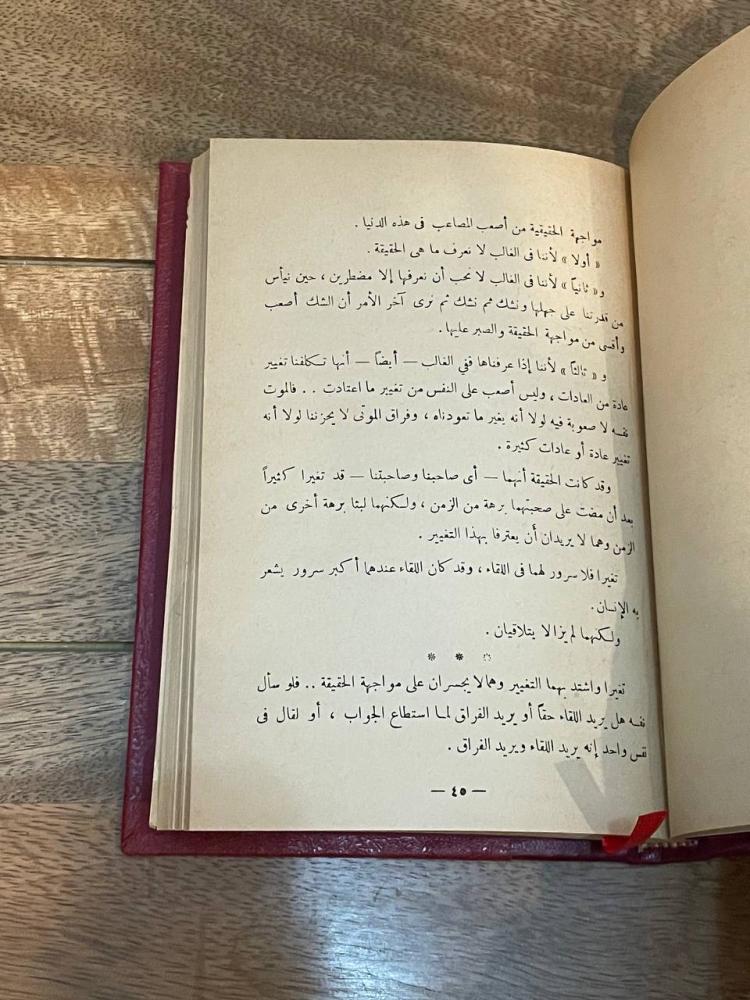 مواجهة الحقيقة من أصعب المصاعب فى هذه الدنيا .
« أولا » لأننا فى الغالب لا نعرف ما هى الحقيقة .
و « ثانياً » لأننا فى الغالب لا نحب أن نعرفها إلا مضطرين ، حين نيأس
من قدرتنا على جهلها ونشك ثم نشك ثم نرى آخر الأمر أن الشك أصعب
وأقسى من مواجهة الحقيقة والصبر عليها .
و « ثالثاً » لأننا إذا عرفناها ففي الغالب — أيضاً — أنها تكلفنا تغيير
عادة من العادات ، وليس أصعب على النفس من تغيير ما اعتادت . . فالموت
نفسه لا صعوبة فيه لولا أنه يغير ما تعودناه ، وفراق الموتى لا يحزننا لولا أنه
تغيير عادة أو عادات كثيرة .
وقد كانت الحقيقة أنهما — أى صاحبنا وصاحبتنا — قد تغيرا كثيراً
بعد أن مضت على صحبتهما برهة من الزمن ، ولكنهما لبثا برهة أخرى من
الزمن وهما لا يريدان أن يعترفا بهذا التغيير .
تغيرا فلا سرور لهما فى اللقاء ، وقد كان اللقاء عندهما أكبر سرور يشعر
به الإنسان .
ولكنهما لم يزالا يتلاقيان .
* * *
تغيرا واشتد بهما التغيير وهما لا يجسران على مواجهة الحقيقة .. فلو سأل
نفسه هل يريد اللقاء حقاً أو يريد الفراق لما استطاع الجواب ، أو لقال فى
نفس واحد إنه يريد اللقاء ويريد الفراق .
— ٤٥ —